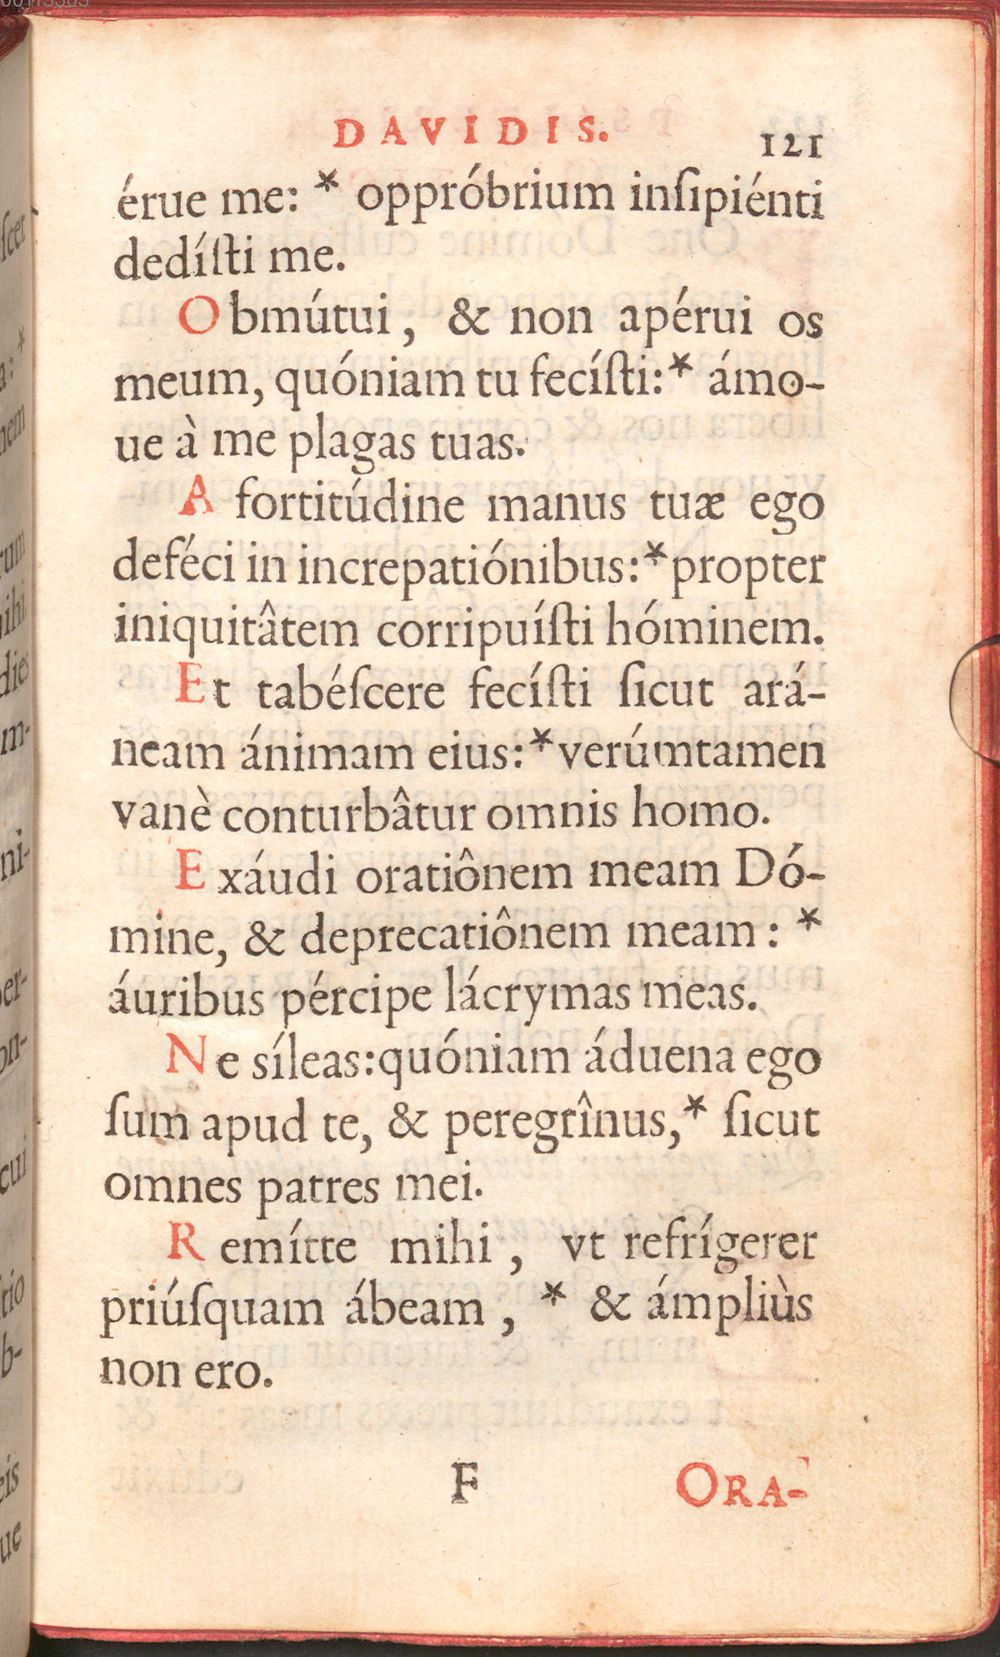 DAVIDIS. 121
érue me: * oppróbrium inſipiénti
dedíſti me.
Obmútui, & non apérui os
meum, quóniam tu fecíſti:* ámo-
ue à me plagas tuas.
A fortitúdine manus tuæ ego
deféci in increpatiónibus:*propter
iniquitâtem corripuíſti hóminem.
Et tabéſcere fecíſti ſicut ará-
neam ánimam eius:*verúmtamen
vanè conturbâtur omnis homo.
Exáudi oratiônem meam Dó-
mine, & deprecatiônem meam: *
áuribus pércipe lácrymas meas.
Ne síleas:quóniam áduena ego
ſum apud te, & peregrînus,* ſicut
omnes patres mei.
Remítte mihi, vt refrígerer
priúſquam ábeam, * & ámpliùs
non ero.
F ORA-